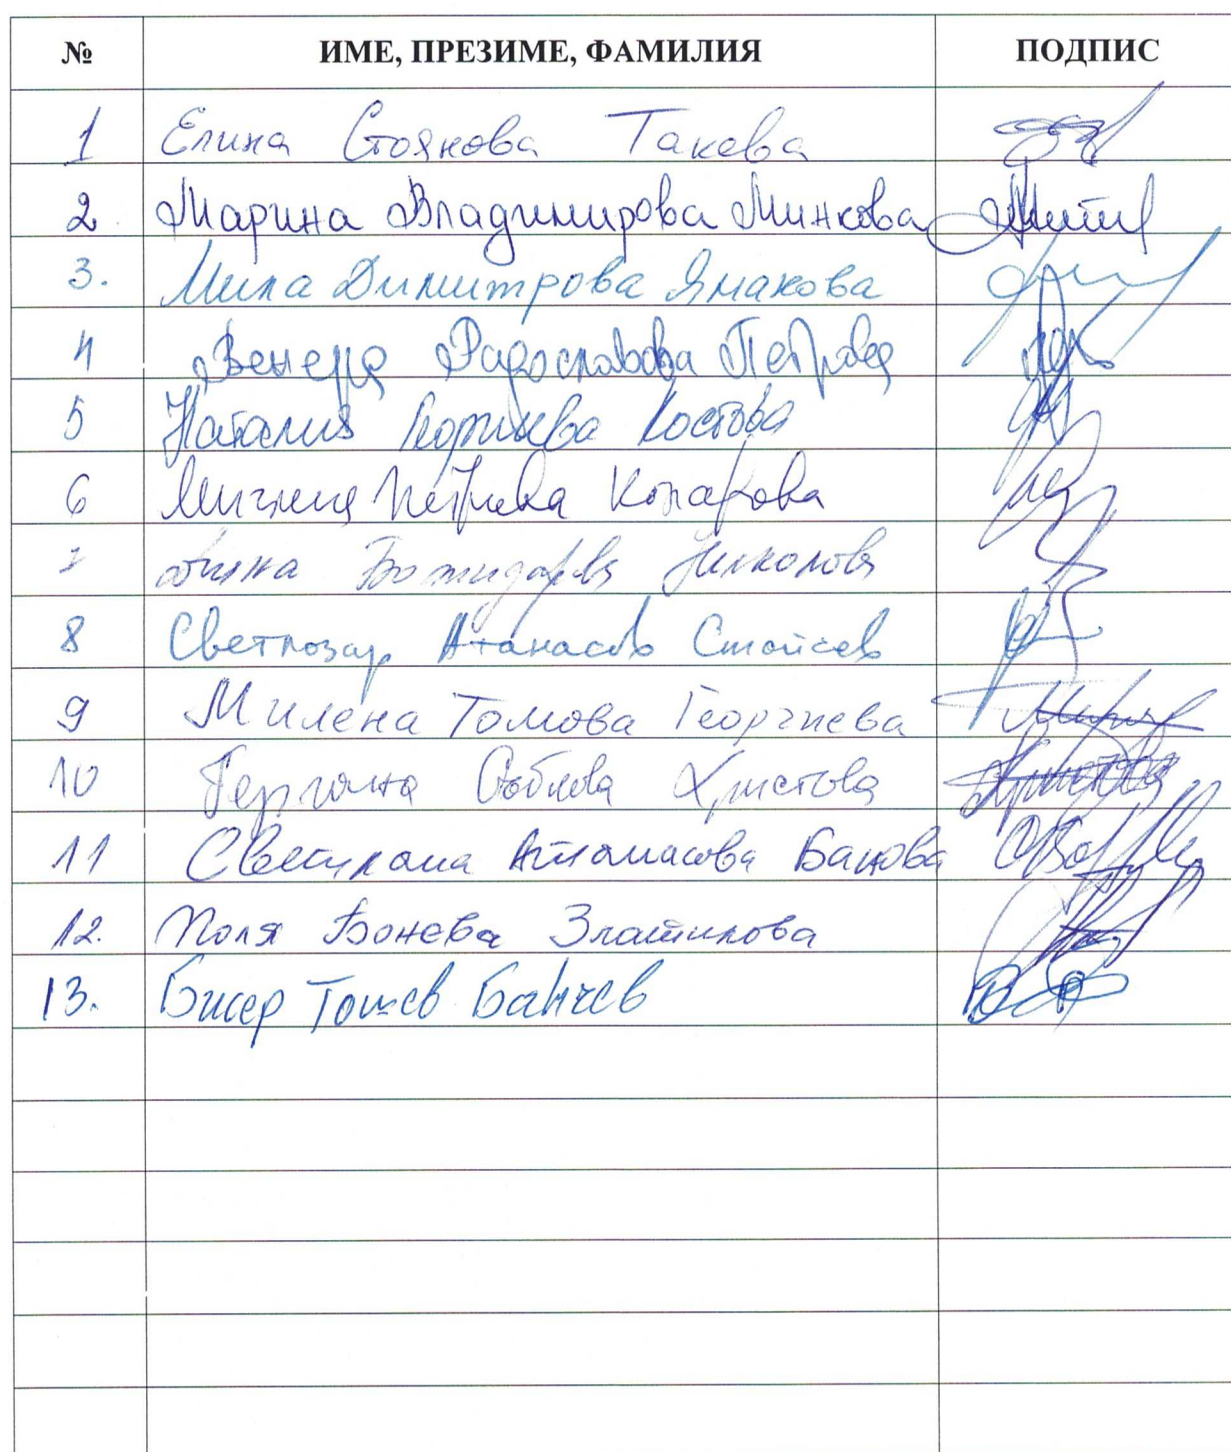 № ИМЕ, ПРЕЗИМЕ, ФАМИЛИЯ ПОДПИС
1 Елина Стоянова Такева
2. Марина Владимирова Минкова
3. Мила Димитрова Ямакова
4 Венера Радославова Петрова
5 Наталия Георгиева Костова
6 Петрова
7 Божидарова Николова
8 Светлозар Атанасов Стойчев
9 Милена Томова Георгиева
10 Гергана Събева Христова
11 Светлана Атанасова Банова
12. Поля Бонева Златилова
13. Бисер Тошев Банчев